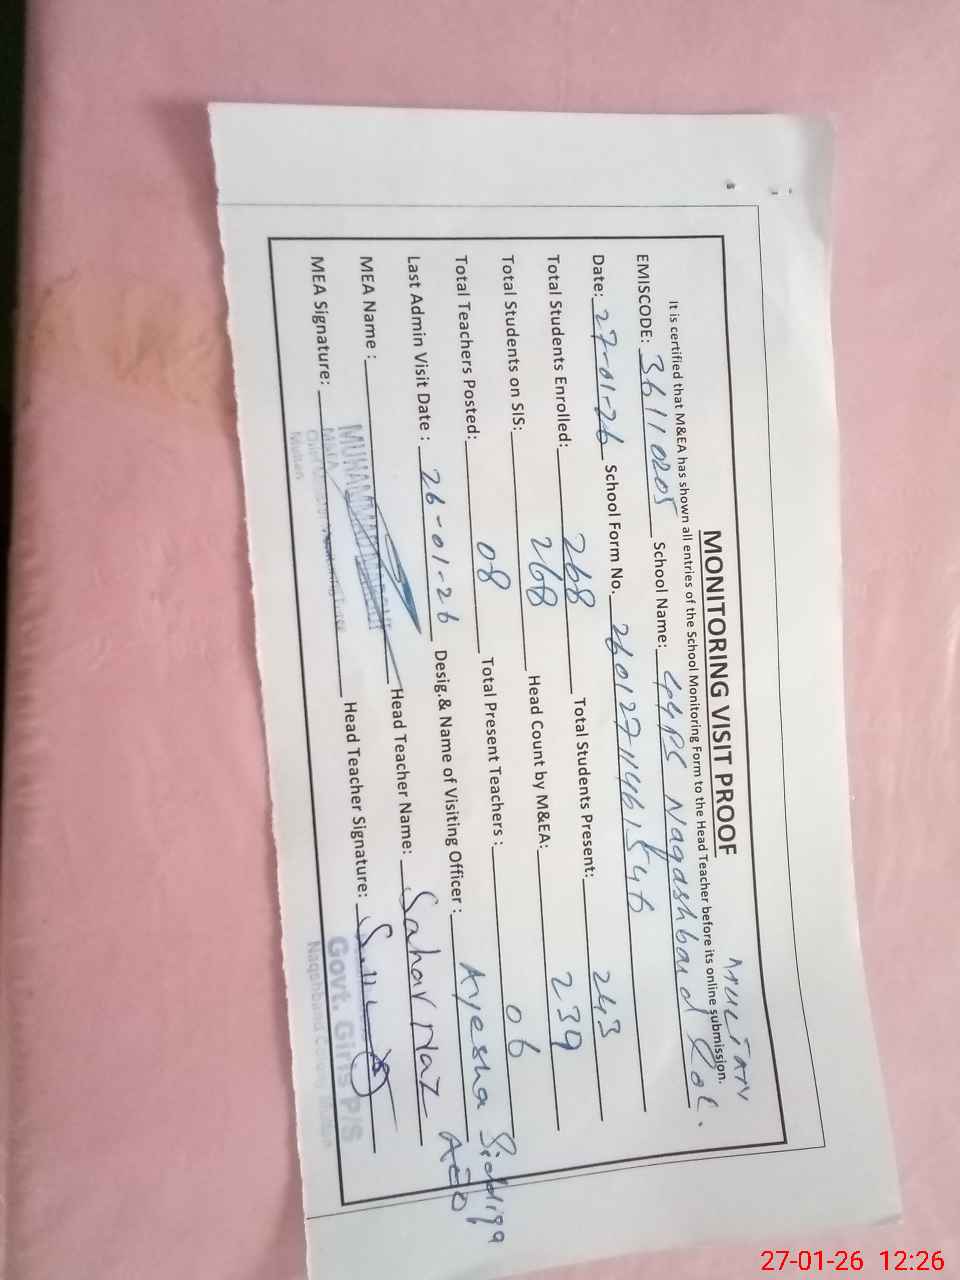 MONITORING VISIT PROOF
MULTAN
It is certified that M&EA has shown all entries of the School Monitoring Form to the Head Teacher before its online submission.
EMISCODE: 36110205 School Name: GGPS Naqashband Col.
Date: 27-01-26 School Form No. 26012711461546
Total Students Enrolled: 268 Total Students Present: 243
Total Students on SIS: 268 Head Count by M&EA: 239
Total Teachers Posted: 08 Total Present Teachers : 06
Last Admin Visit Date : 26-01-26 Desig.& Name of Visiting Officer : Ayesha Siddiqa AEO
MEA Name : MUHAMMAD Head Teacher Name: Sahar Naz
MEA Signature: Head Teacher Signature:
Govt. Girls P/S
Naqshband Colony Multan
27-01-26 12:26